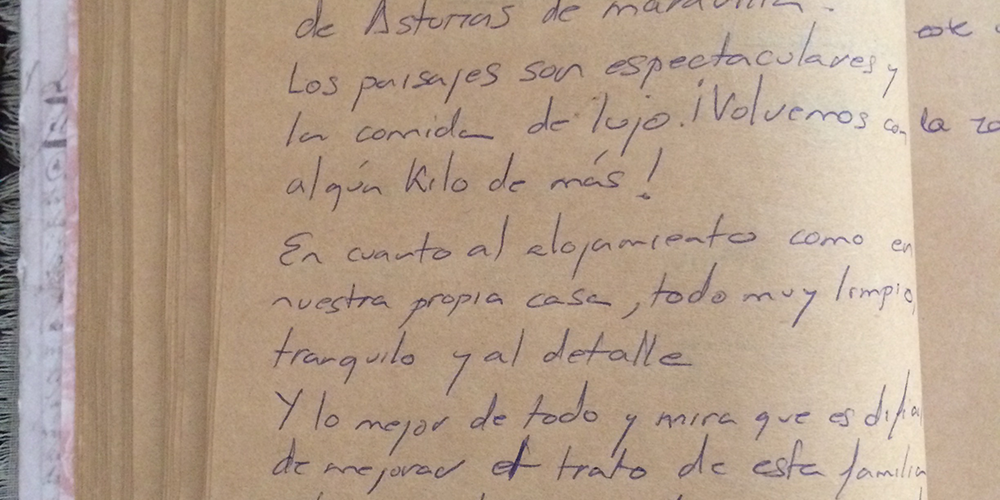 de Asturias de maravilla.
Los paisajes son espectaculares y
la comida de lujo. ¡Volvemos con
algún Kilo de más!
En cuanto al alojamiento como en
nuestra propia casa, todo muy limpio,
tranquilo y al detalle
Y lo mejor de todo y mira que es
de mejorar el trato de esta familia
la